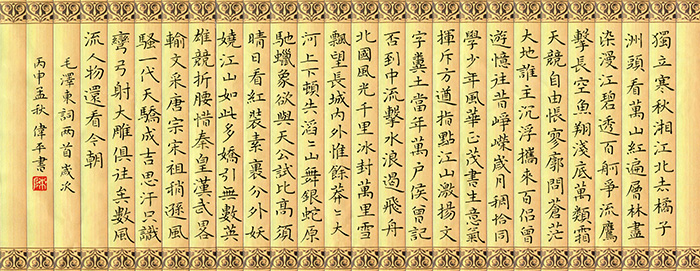 獨立寒秋湘江北去橘子
洲頭看萬山紅遍層林盡
染漫江碧透百舸爭流鷹
擊長空魚翔淺底萬類霜
天競自由悵寥廓問蒼茫
大地誰主沉浮攜來百侶曾
遊憶往昔崢嶸歲月稠恰同
學少年風華正茂書生意氣
揮斥方遒指點江山激揚文
字糞土當年萬戶侯曾記
否到中流擊水浪遏飛舟
北國風光千里冰封萬里雪
飄望長城內外惟餘莽〻大
河上下頓失滔〻山舞銀蛇原
馳蠟象欲與天公試比高須
晴日看紅裝素裹分外妖
嬈江山如此多嬌引無數英
雄競折腰惜秦皇漢武畧
輸文采唐宗宋祖稍遜風
騷一代天驕成吉思汗只識
彎弓射大雕俱往矣數風
流人物還看今朝
毛澤東詞兩首歲次
丙申孟秋偉平書